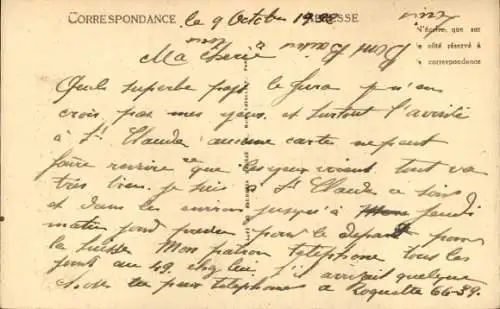 CORRESPONDANCE le 9 Octobre 19 ADRESSE
N'écrire que sur
le côté réservé à
la correspondance
Ma Cherie
Quels superbe pays le Jura j'en
crois pas mes yeux et surtout l'arrivée
à St Claude aucune carte ne peut
faire revivre ce que les yeux voient tout va
très bien. je suis à St Claude ce soir
et dans les environs jusqu'à jeudi
matin pour le depart pour
la Suisse Mon patron telephone tous les
jours au 49. chez lui. S'il arrivait quelque
chose tu peux telephoner à Roquette 66-39.